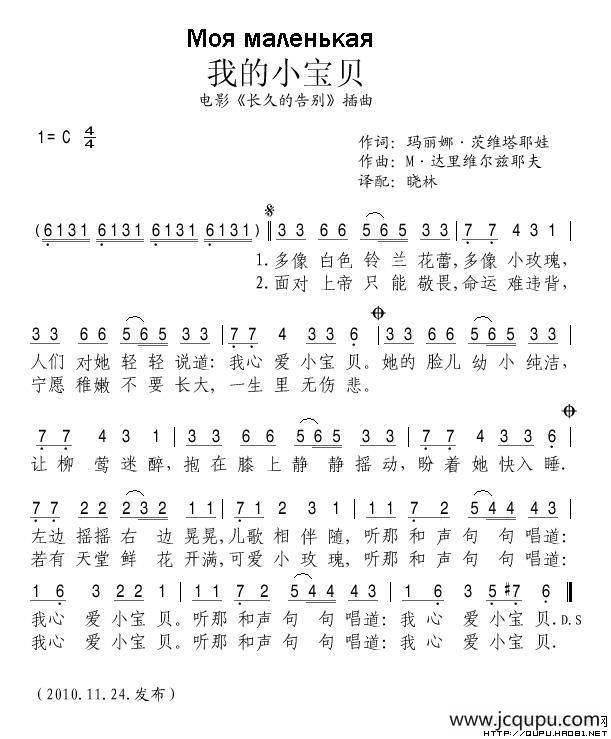 Моя маленькая
我的小宝贝
电影《长久的告别》插曲
1= C 4/4
作词：玛丽娜·茨维塔耶娃
作曲：M·达里维尔兹耶夫
译配：晓林
(6131 6131 6131 6131 ‖ 33 66 565 33 | 77 431 |
1.多像 白色 铃 兰 花蕾,多像 小玫瑰,
2.面对 上帝 只 能 敬畏,命运 难违背,
33 66 565 33 | 77 4 33 6 | 33 66 565 33 |
人们 对她 轻轻 说道：我心 爱 小宝 贝。她的 脸儿 幼 小 纯洁,
宁愿 稚嫩 不 要 长大, 一生 里 无伤 悲。
77 431 | 33 66 565 33 | 77 4 33 6 |
让柳 莺迷醉, 抱在 膝上 静 静 摇动, 盼着 她 快入 睡.
77 22 232 11 | 71 2 31 | 77 22 544 43 |
左边 摇摇 右 边 晃晃,儿歌 相 伴随, 听那 和声 句 句 唱道：
若有 天堂 鲜 花 开满,可爱 小 玫瑰, 听那 和声 句 句 唱道：
16 3 22 1 | 77 22 544 43 | 16 3 5#7 6 ‖
我心 爱 小宝 贝。听那 和声 句 句 唱道：我 心 爱 小宝 贝. D.S
我心 爱 小宝 贝。听那 和声 句 句 唱道：我 心 爱 小宝 贝.
(2010.11.24.发布)
www.jcqupu.com
HTTP://QUPU.HAO81.NET